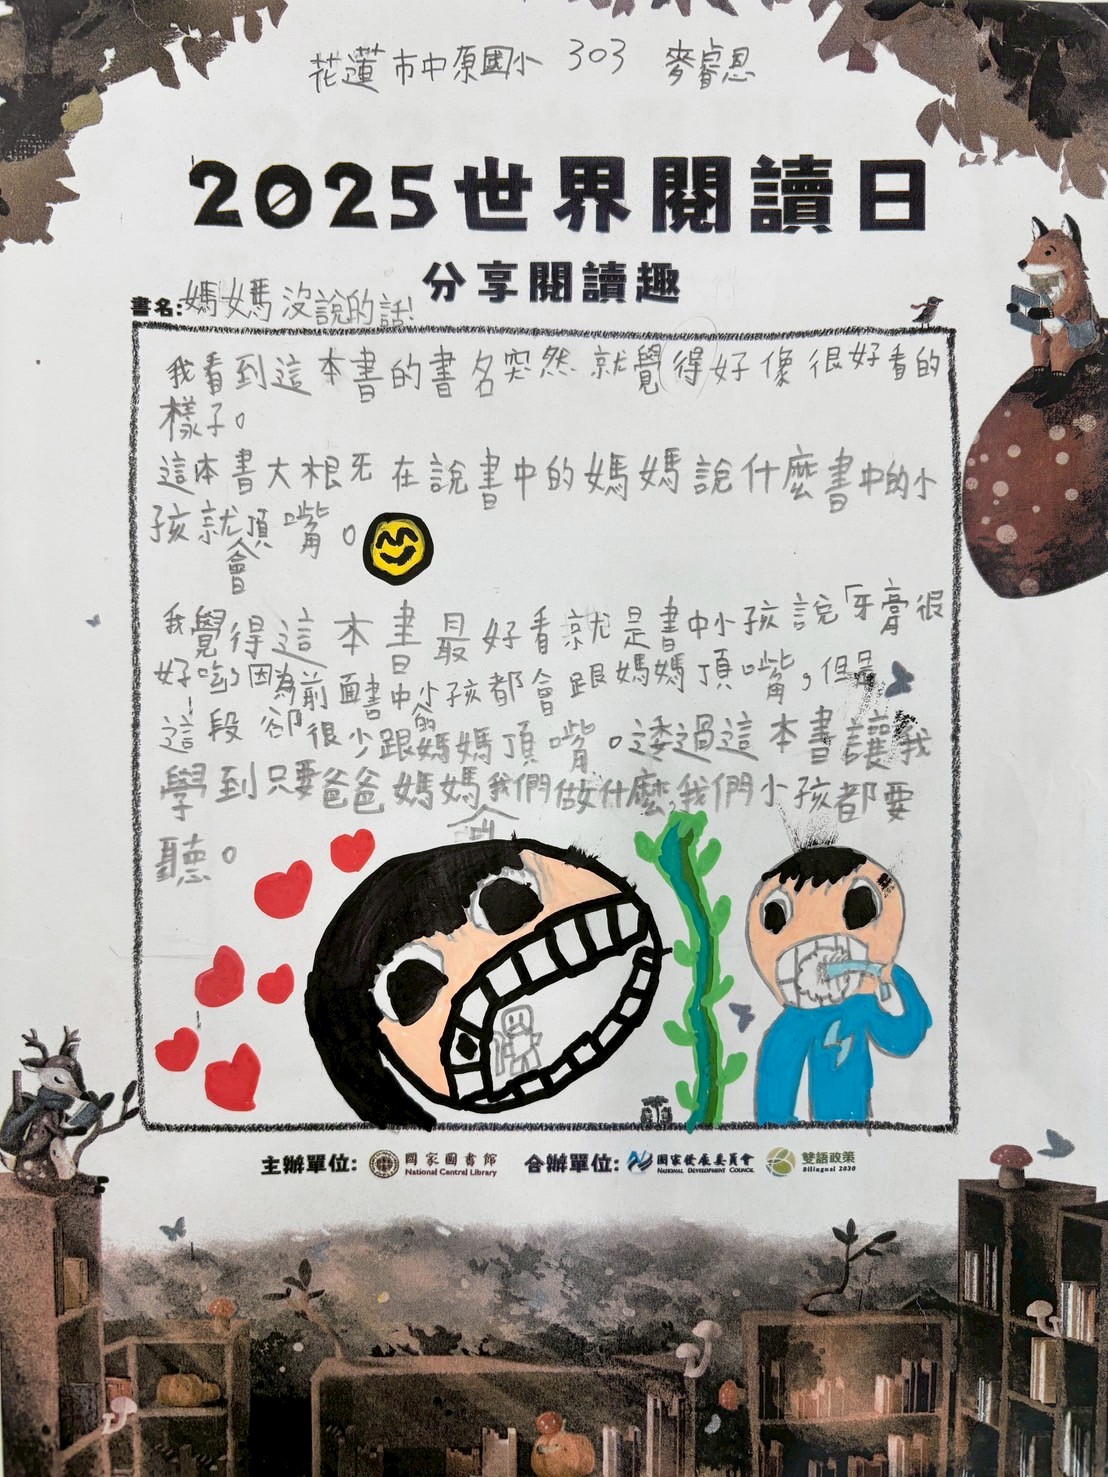 花蓮市中原國小 303 麥睿恩
2025世界閱讀日
分享閱讀趣
書名:媽媽沒說的話!
我看到這本書的書名突然就覺得好像很好看的
樣子。
這本書大根死在說書中的媽媽說什麼書中的小
孩就會頂嘴。
我覺得這本書最好看就是書中小孩說「牙膏很
好吃」因為前面書中的小孩都會跟媽媽頂嘴,但是
這一段卻很少跟媽媽頂嘴。透過這本書讓我
學到只要爸爸媽媽我們做什麼,我們小孩都要
聽。
主辦單位: 國家圖書館 National Central Library 合辦單位: 國家發展委員會 National Development Council 雙語政策 Bilingual 2030